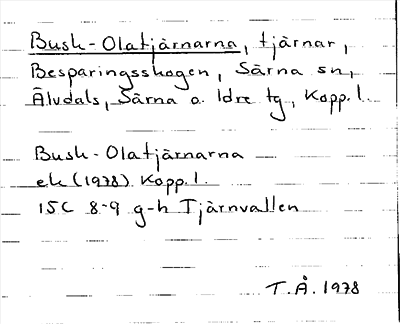 Busk-Olatjärnarna, tjärnar,
Besparingsskogen, Särna sn,
Älvdals, Särna o. Idre tg., Kopp. l.
Busk-Olatjärnarna
ek (1978) Kopp. l.
15C 8-9 g-h Tjärnvallen
T.Å. 1978